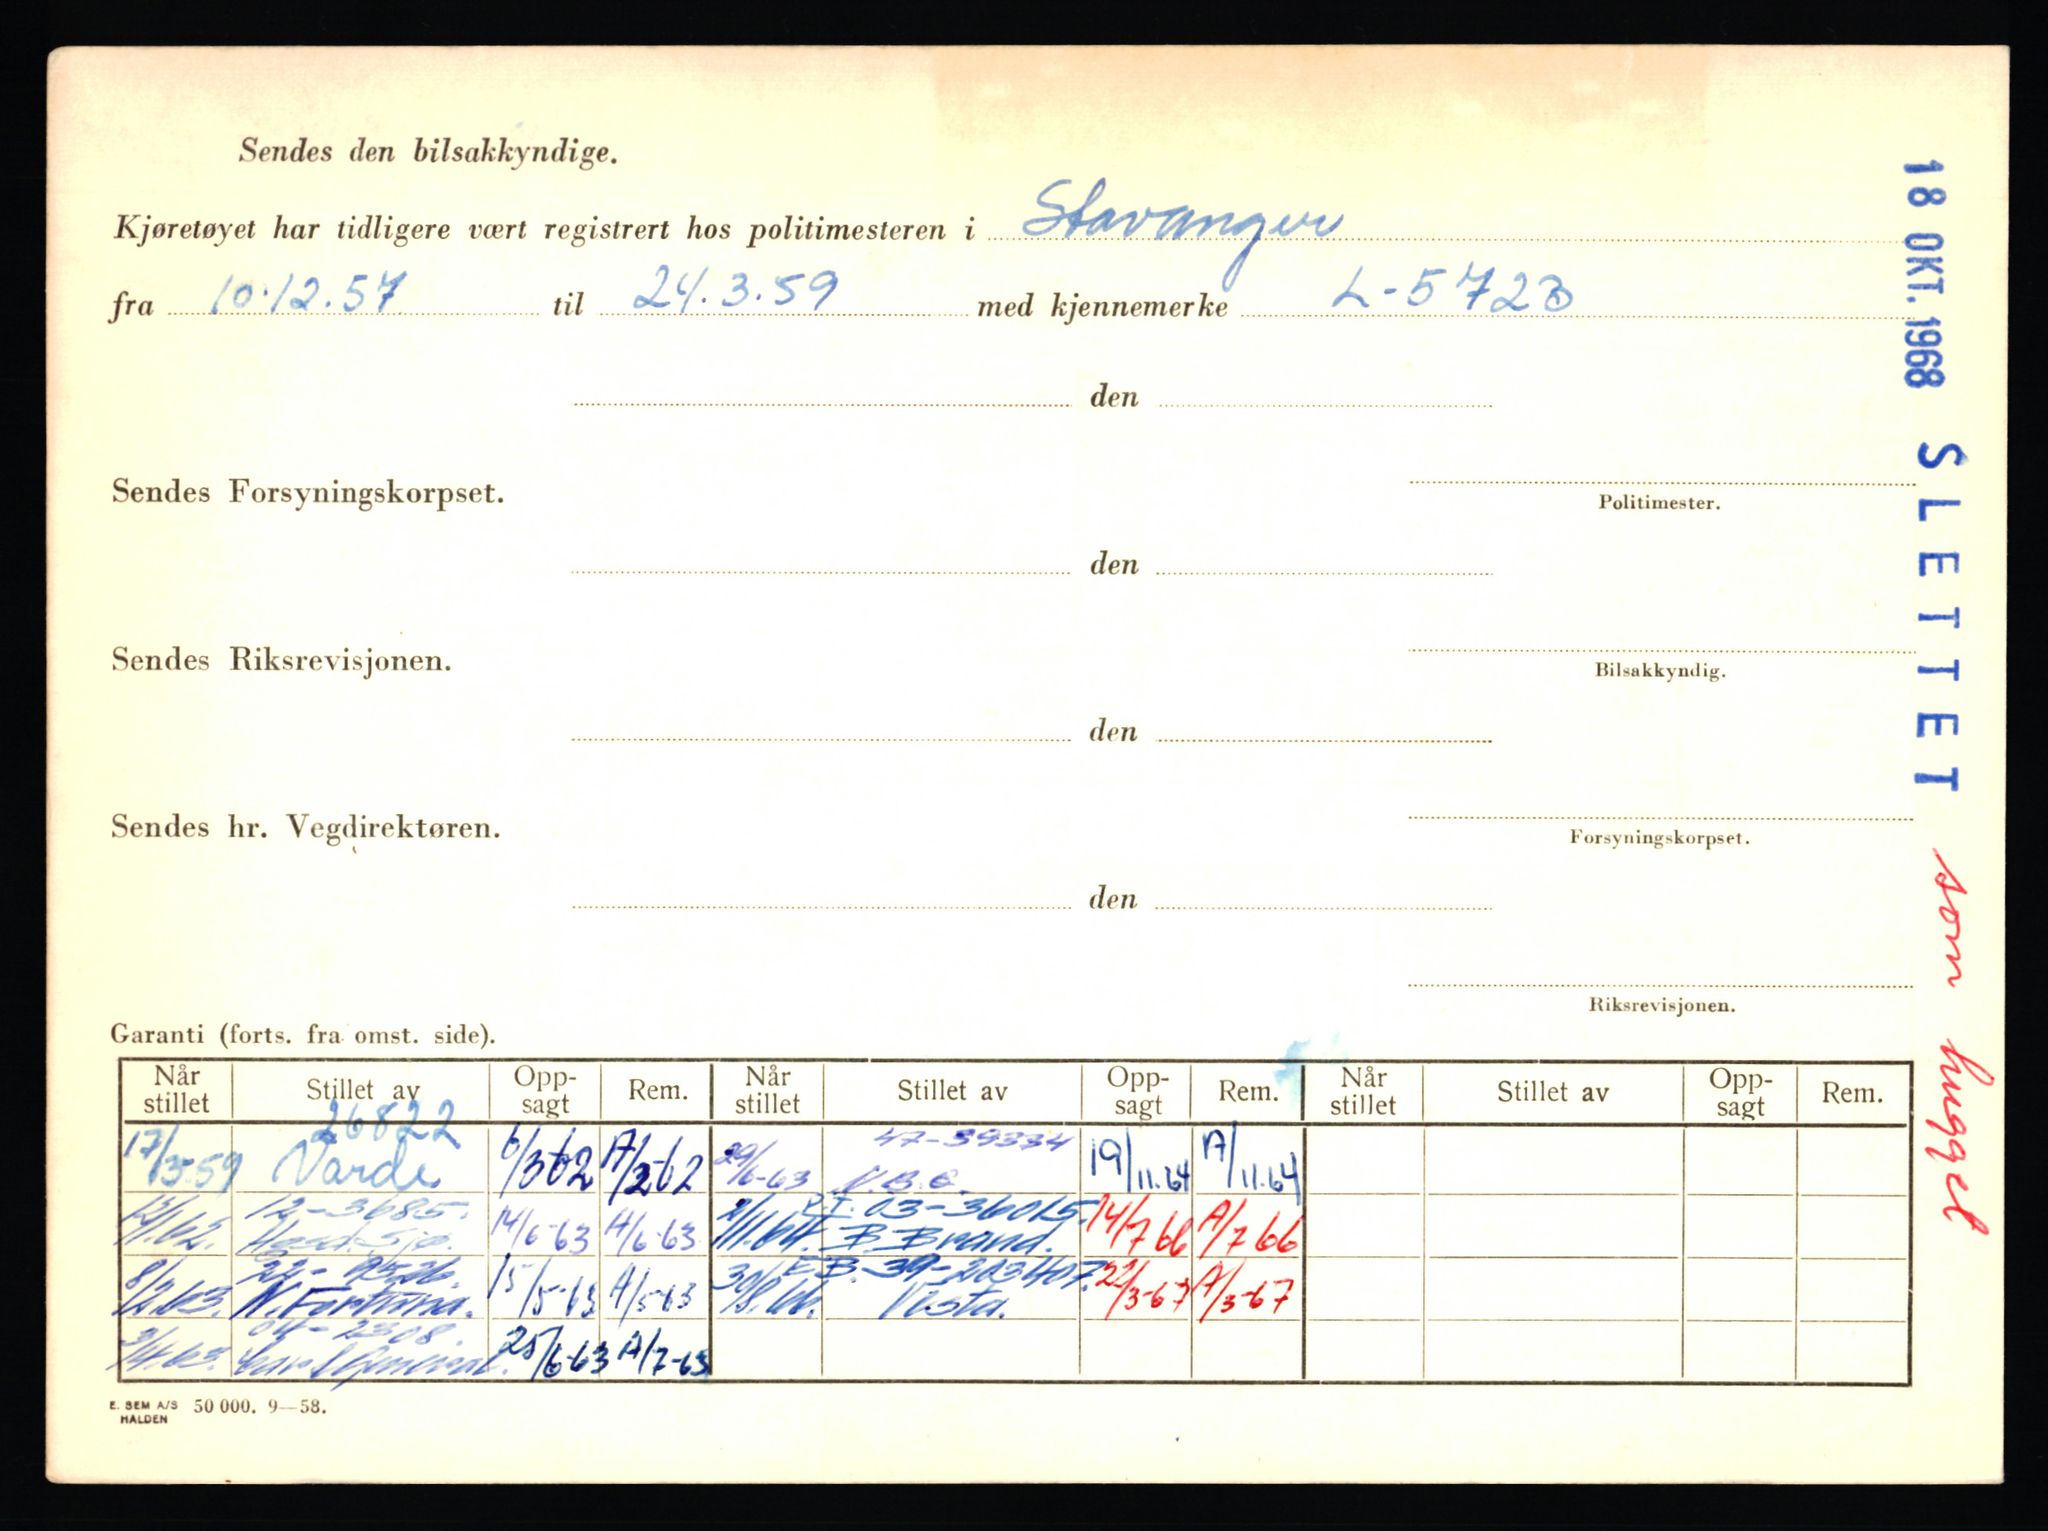 Sendes den bilsakkyndige.
Kjøretøyet har tidligere vært registrert hos politimesteren i Stavanger
fra 10.12.57 til 24.3.59 med kjennemerke L-5723
den
Sendes Forsyningskorpset.
Politimester.
den
Sendes Riksrevisjonen.
Bilsakkyndig.
den
Sendes hr. Vegdirektøren.
Forsyningskorpset.
den
Riksrevisjonen.
18 OKT. 1968 SLETTET som hugget
Garanti (forts. fra omst. side).
Når stillet Stillet av Opp-sagt Rem. Når stillet Stillet av Opp-sagt Rem. Når stillet Stillet av Opp-sagt Rem.
26822 47-39334
17/3-59 Varde 6/3-62 A/3-62 29/6-63 19/11.64 A/11.64
12-3685. 03-36015.
14/6-63 A/6-63 2/11.64. B. Brand. 14/7 66 A/7 66
E.B. 39-203407.
8/2.63. N. Fortuna. 15/5-63 A/5-63 30/8.66. Vesta. 22/3-67 A/3-67
04-2308.
3/4.63. 25/6-63 A/7-63
E. SEM A/S HALDEN 50 000. 9—58.